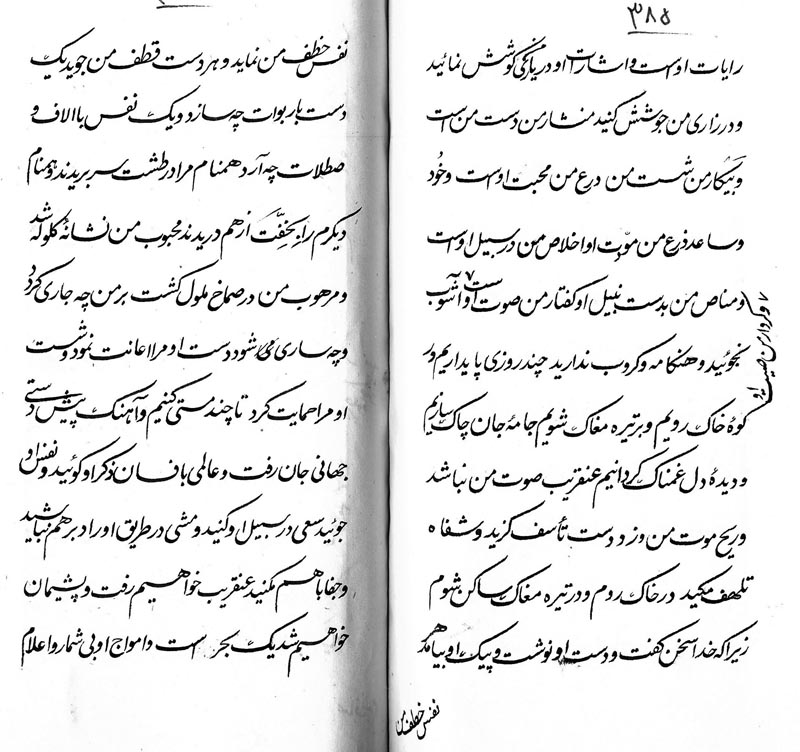 ۳۸۵
رایات اوست و اشارت او در پاریکی کوشش نمائید
و در زاری من جوشش کنید منشار من دست من است
و پیکار من شست من درع من محبت اوست و خُود
و ساعد ذرع من مودّت او اخلاص من در سبیل اوست
و مناص من بدست نبیل او گفتار من صوت اوست و آشوب
۷ و کردار من صیت او
نجوئید و هنگامه و کروب ندارید چند روزی پایداریم و در
کوۀ خاک رویم و بر تیره مغاک شویم جامۀ جان چاک سازیم
و دیدۀ دل غمناک گردانیم عنقریب صوت من نباشد
و ریح موت من وزد دست تأسف گزید و شفاه
تلهف مکید در خاک روم و در تیره مغاک ساکن شوم
زیرا که خدا سخن گفت و دست او نوشت و پیک او بیامد
نفس خطف من
نفس خطف من نماید و هر دست قطف من جوید یک
دست بار بوات چه سازد و یک نفس با الاف و
صطلات چه آرد همنام مرا در طشت سر بریدند و همنام
دیگرم را بخِفّت از هم دریدند محبوب من نشانۀ گلوله شد
و مرهوب من در صماخ ملول گشت بر من چه جاری گردد
و چه ساری می شود دست او مرا اعانت نمود و شست
او مرا حمایت کرد تا چند مستی کنیم و آهنگ پیش دستی
جهانی جان رفت و عالمی با فسان ذکر او گوئید و نفس او
جوئید سعی در سبیل او کنید و مشی در طریق او را در هم نباشید
و جفا با هم مکنید عنقریب خواهیم رفت و پشیمان
خواهیم شد یک بحر است و امواج او بی شمار و اعلام